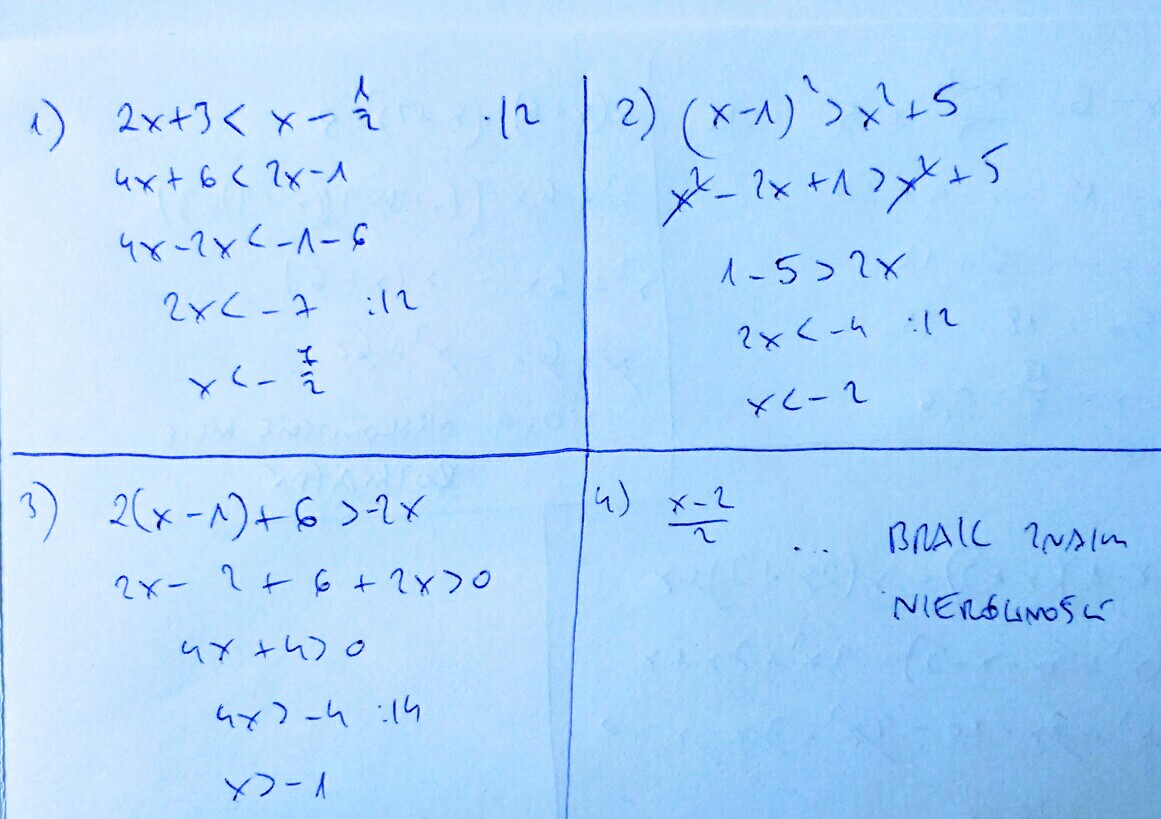 1) 2x+3 < x - 1/2 ·|2
4x + 6 < 2x - 1
4x - 2x < -1 - 6
2x < -7 :|2
x < - 7/2
2) (x-1)² > x² + 5
x² - 2x + 1 > x² + 5
1 - 5 > 2x
2x < -4 :|2
x < - 2
3) 2(x-1) + 6 > -2x
2x - 2 + 6 + 2x > 0
4x + 4 > 0
4x > -4 :|4
x > -1
4) x-2/2 ... BRAK ZNAKU
NIERÓWNOŚCI